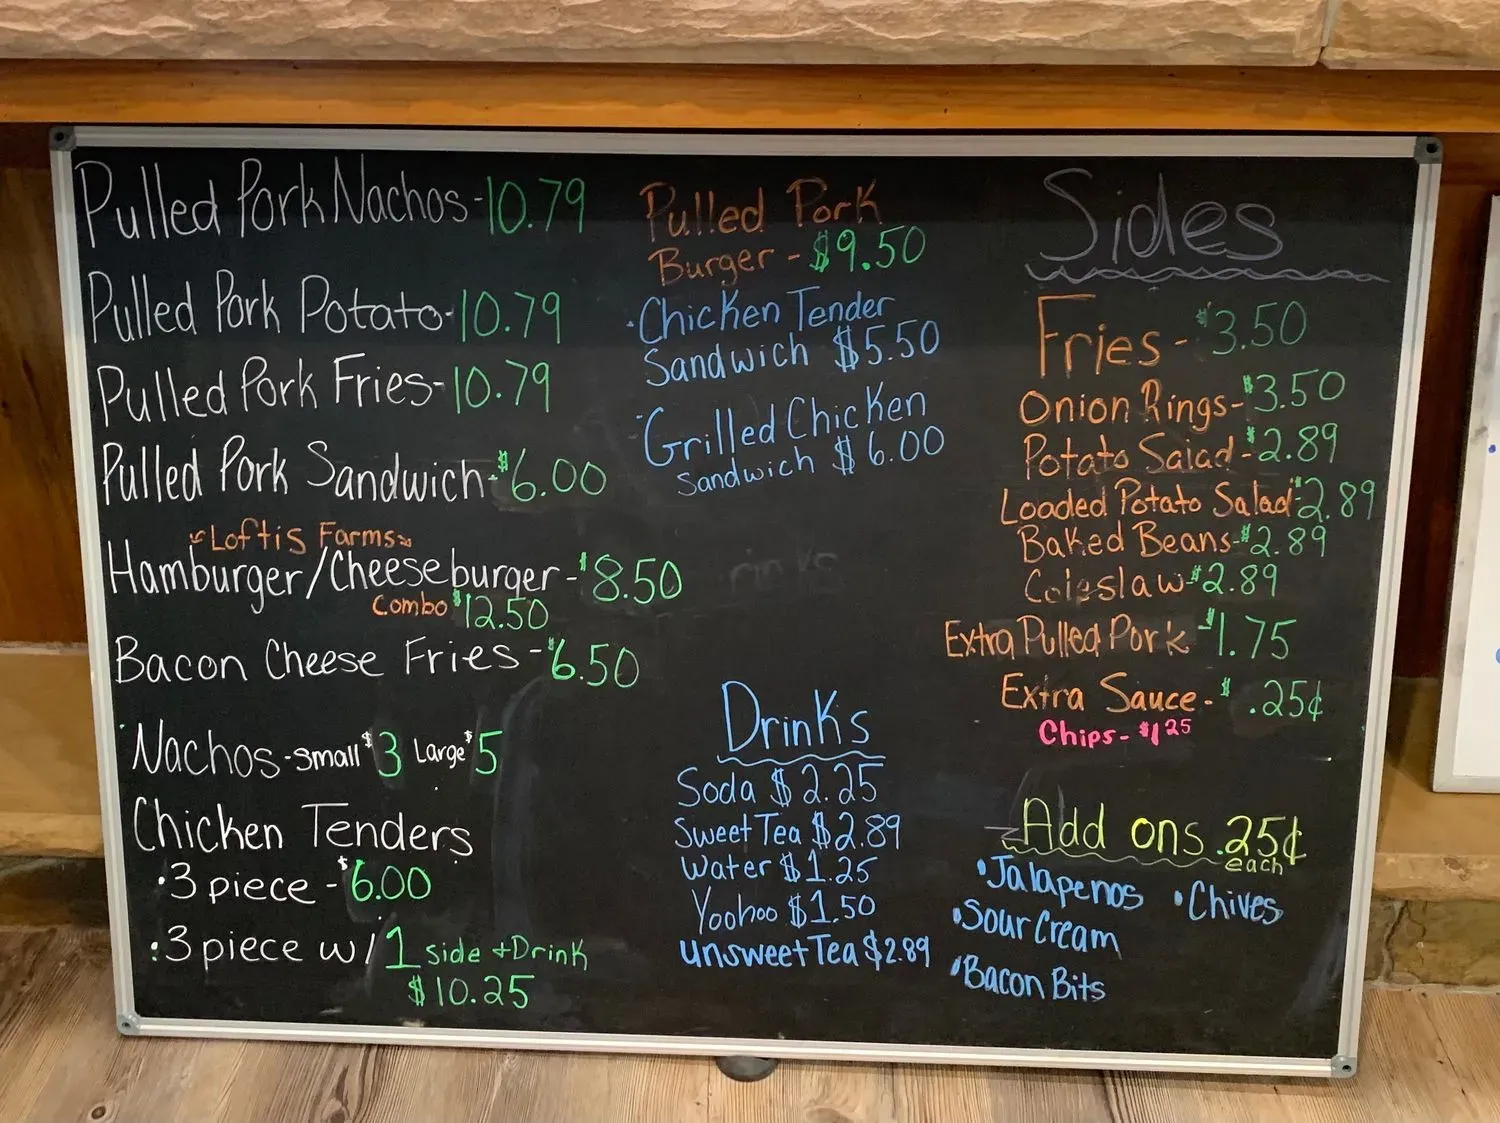 Pulled Pork Nachos-10.79
Pulled Pork Potato-10.79
Pulled Pork Fries-10.79
Pulled Pork Sandwich-$6.00
Loftis Farms
Hamburger/Cheeseburger-$8.50
Combo $12.50
Bacon Cheese Fries-$6.50
Nachos-small $3 Large $5
Chicken Tenders
•3 piece-$6.00
•3 piece w/1 side + Drink
$10.25
Pulled Pork
Burger-$9.50
•Chicken Tender
Sandwich $5.50
•Grilled Chicken
Sandwich $6.00
Drinks
Soda $2.25
Sweet Tea $2.89
Water $1.25
Yoohoo $1.50
Unsweet Tea $2.89
Sides
Fries-$3.50
Onion Rings-$3.50
Potato Salad-$2.89
Loaded Potato Salad $2.89
Baked Beans-$2.89
Coleslaw-$2.89
Extra Pulled Pork $1.75
Extra Sauce-$.25¢
Chips-$1.25
Add ons .25¢
each
•Jalapenos •Chives
•Sour Cream
•Bacon Bits